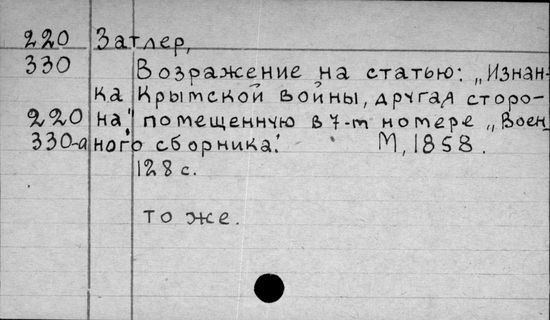 220 Затлер,
330 Возражение на статью: „Изнан-
ка Крымской войны, другая сторо-
220 на", помещенную в 7-т номере „Воен
330-а ного сборника". М, 1858.
128 с.
то же.